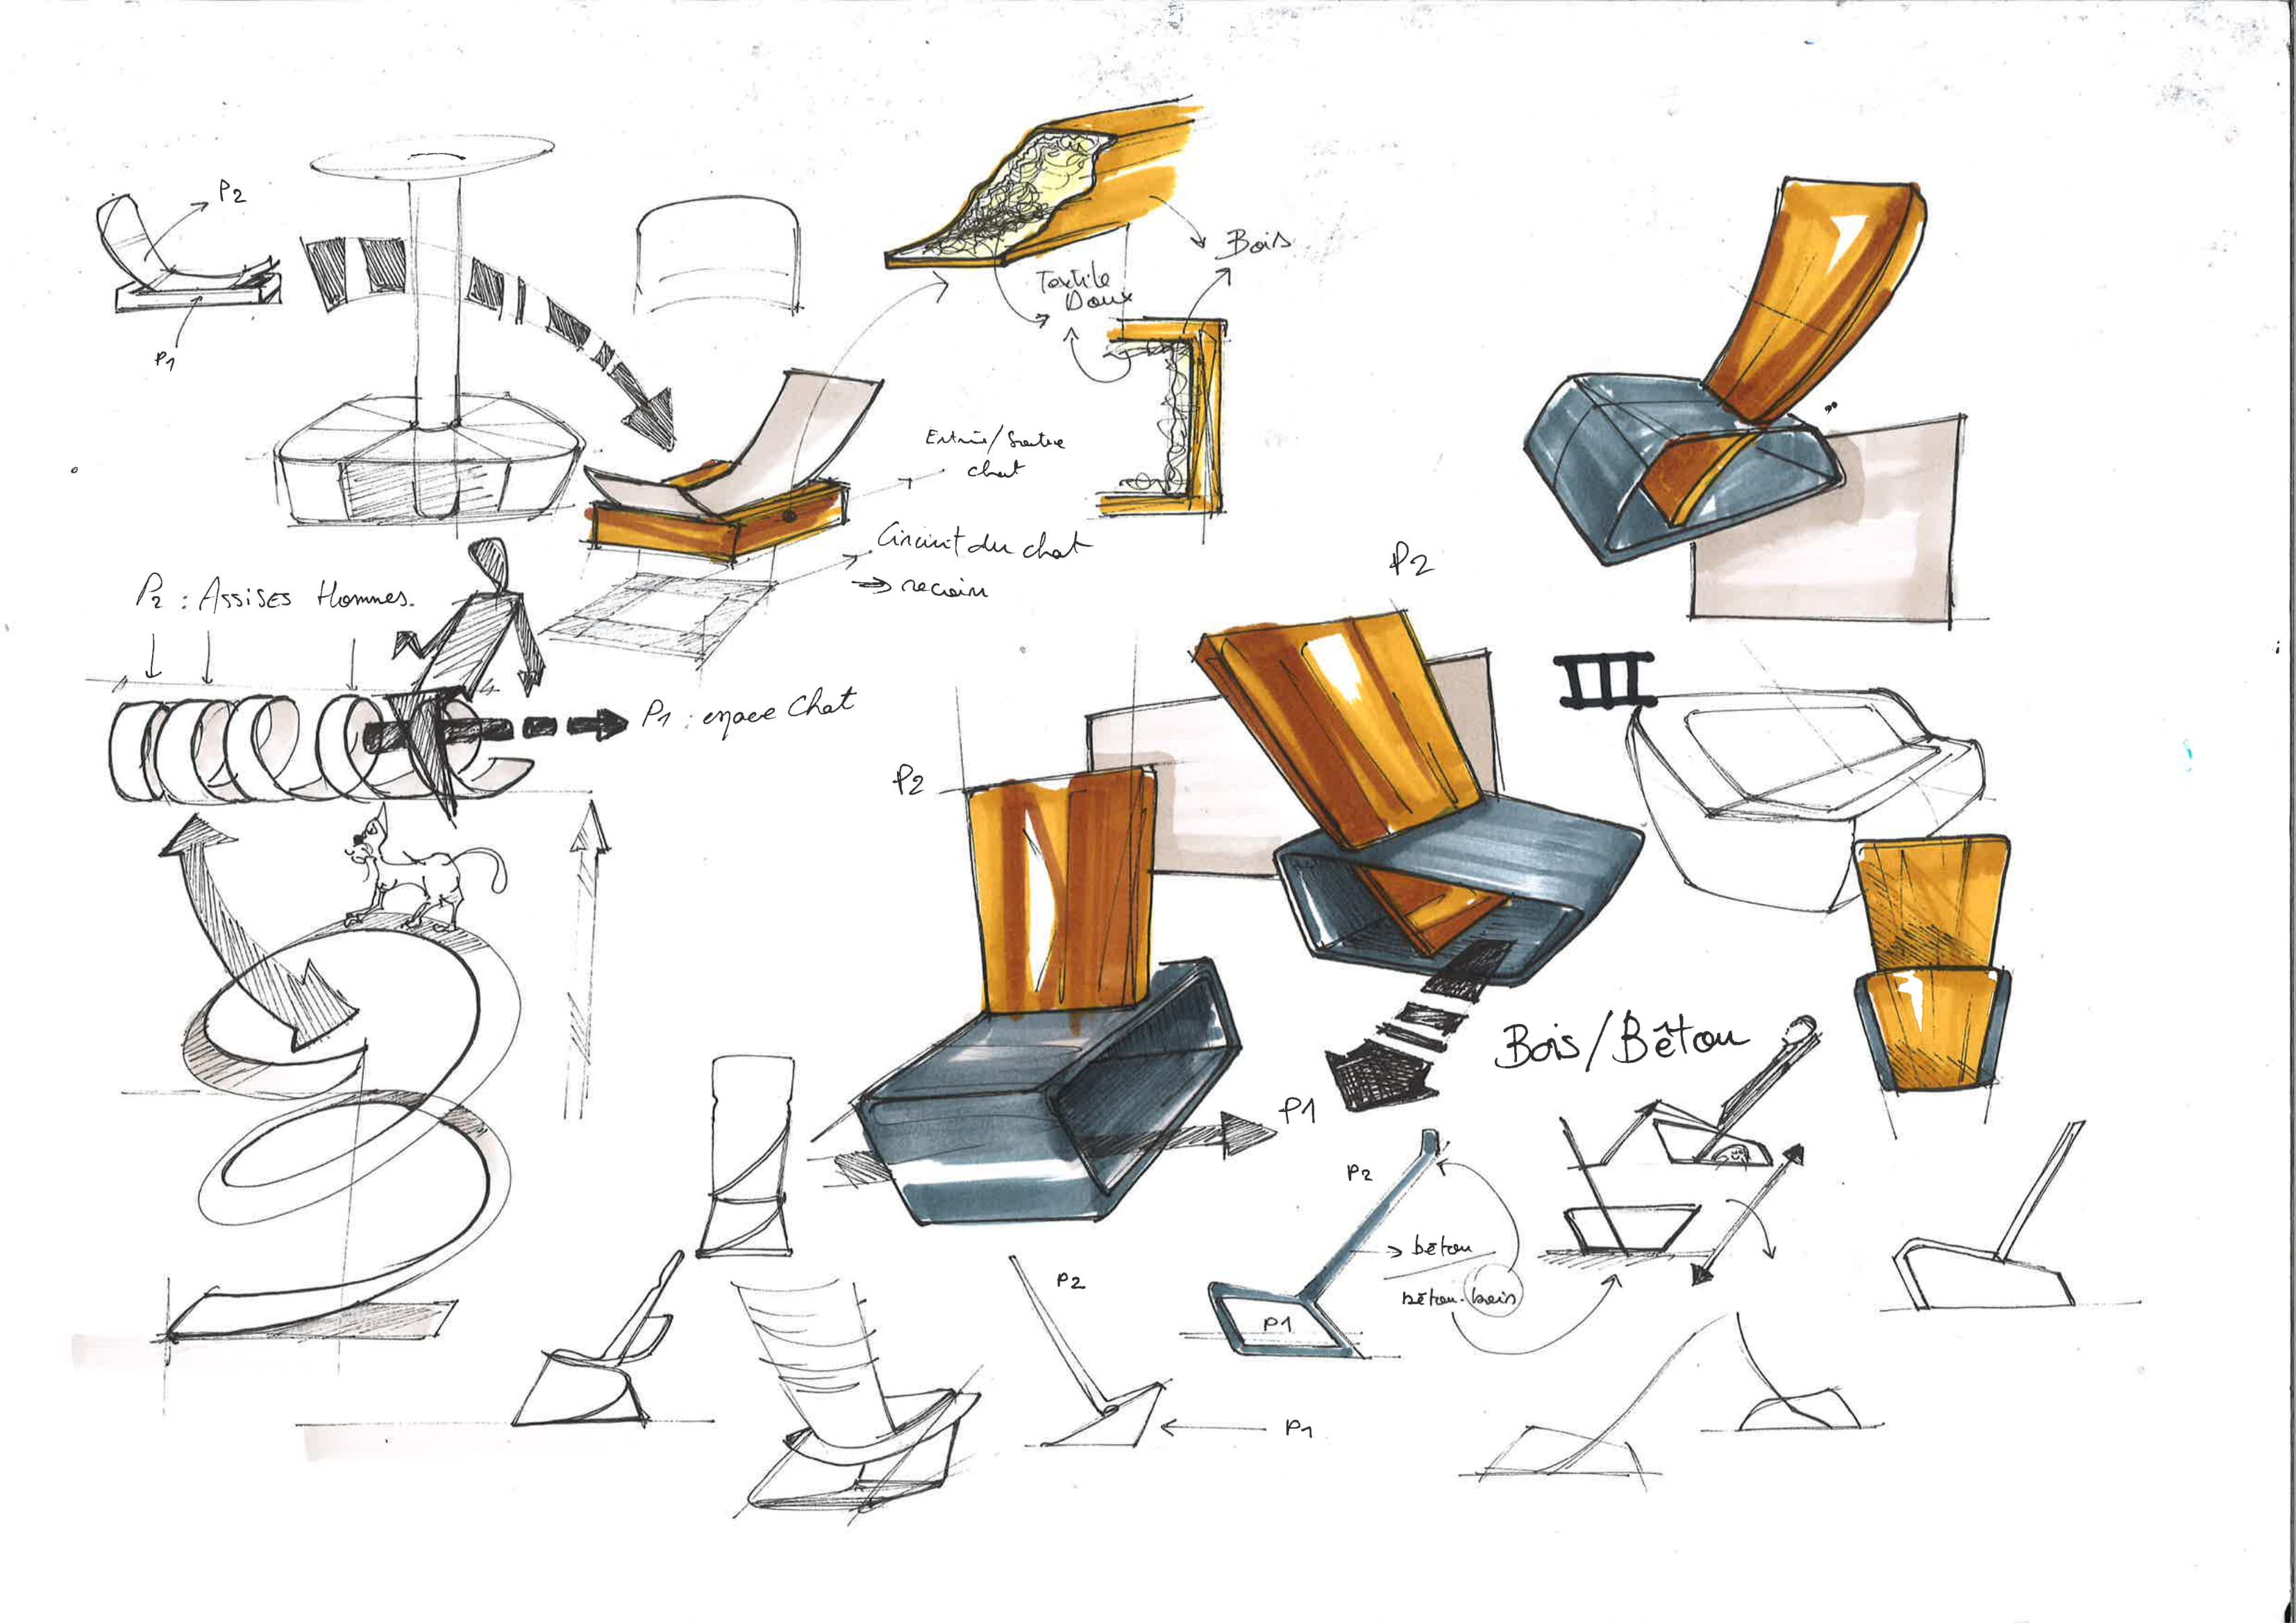 P2
P1
Bois
Textile
Doux
Entrée/Sortie
chat
Circuit du chat
→ recoin
P2 : Assises Hommes.
P1 : espace Chat
P2
P2
III
Bois/Bêton
P1
P2
→ bêton
bêton-bois
P1
P2
P1